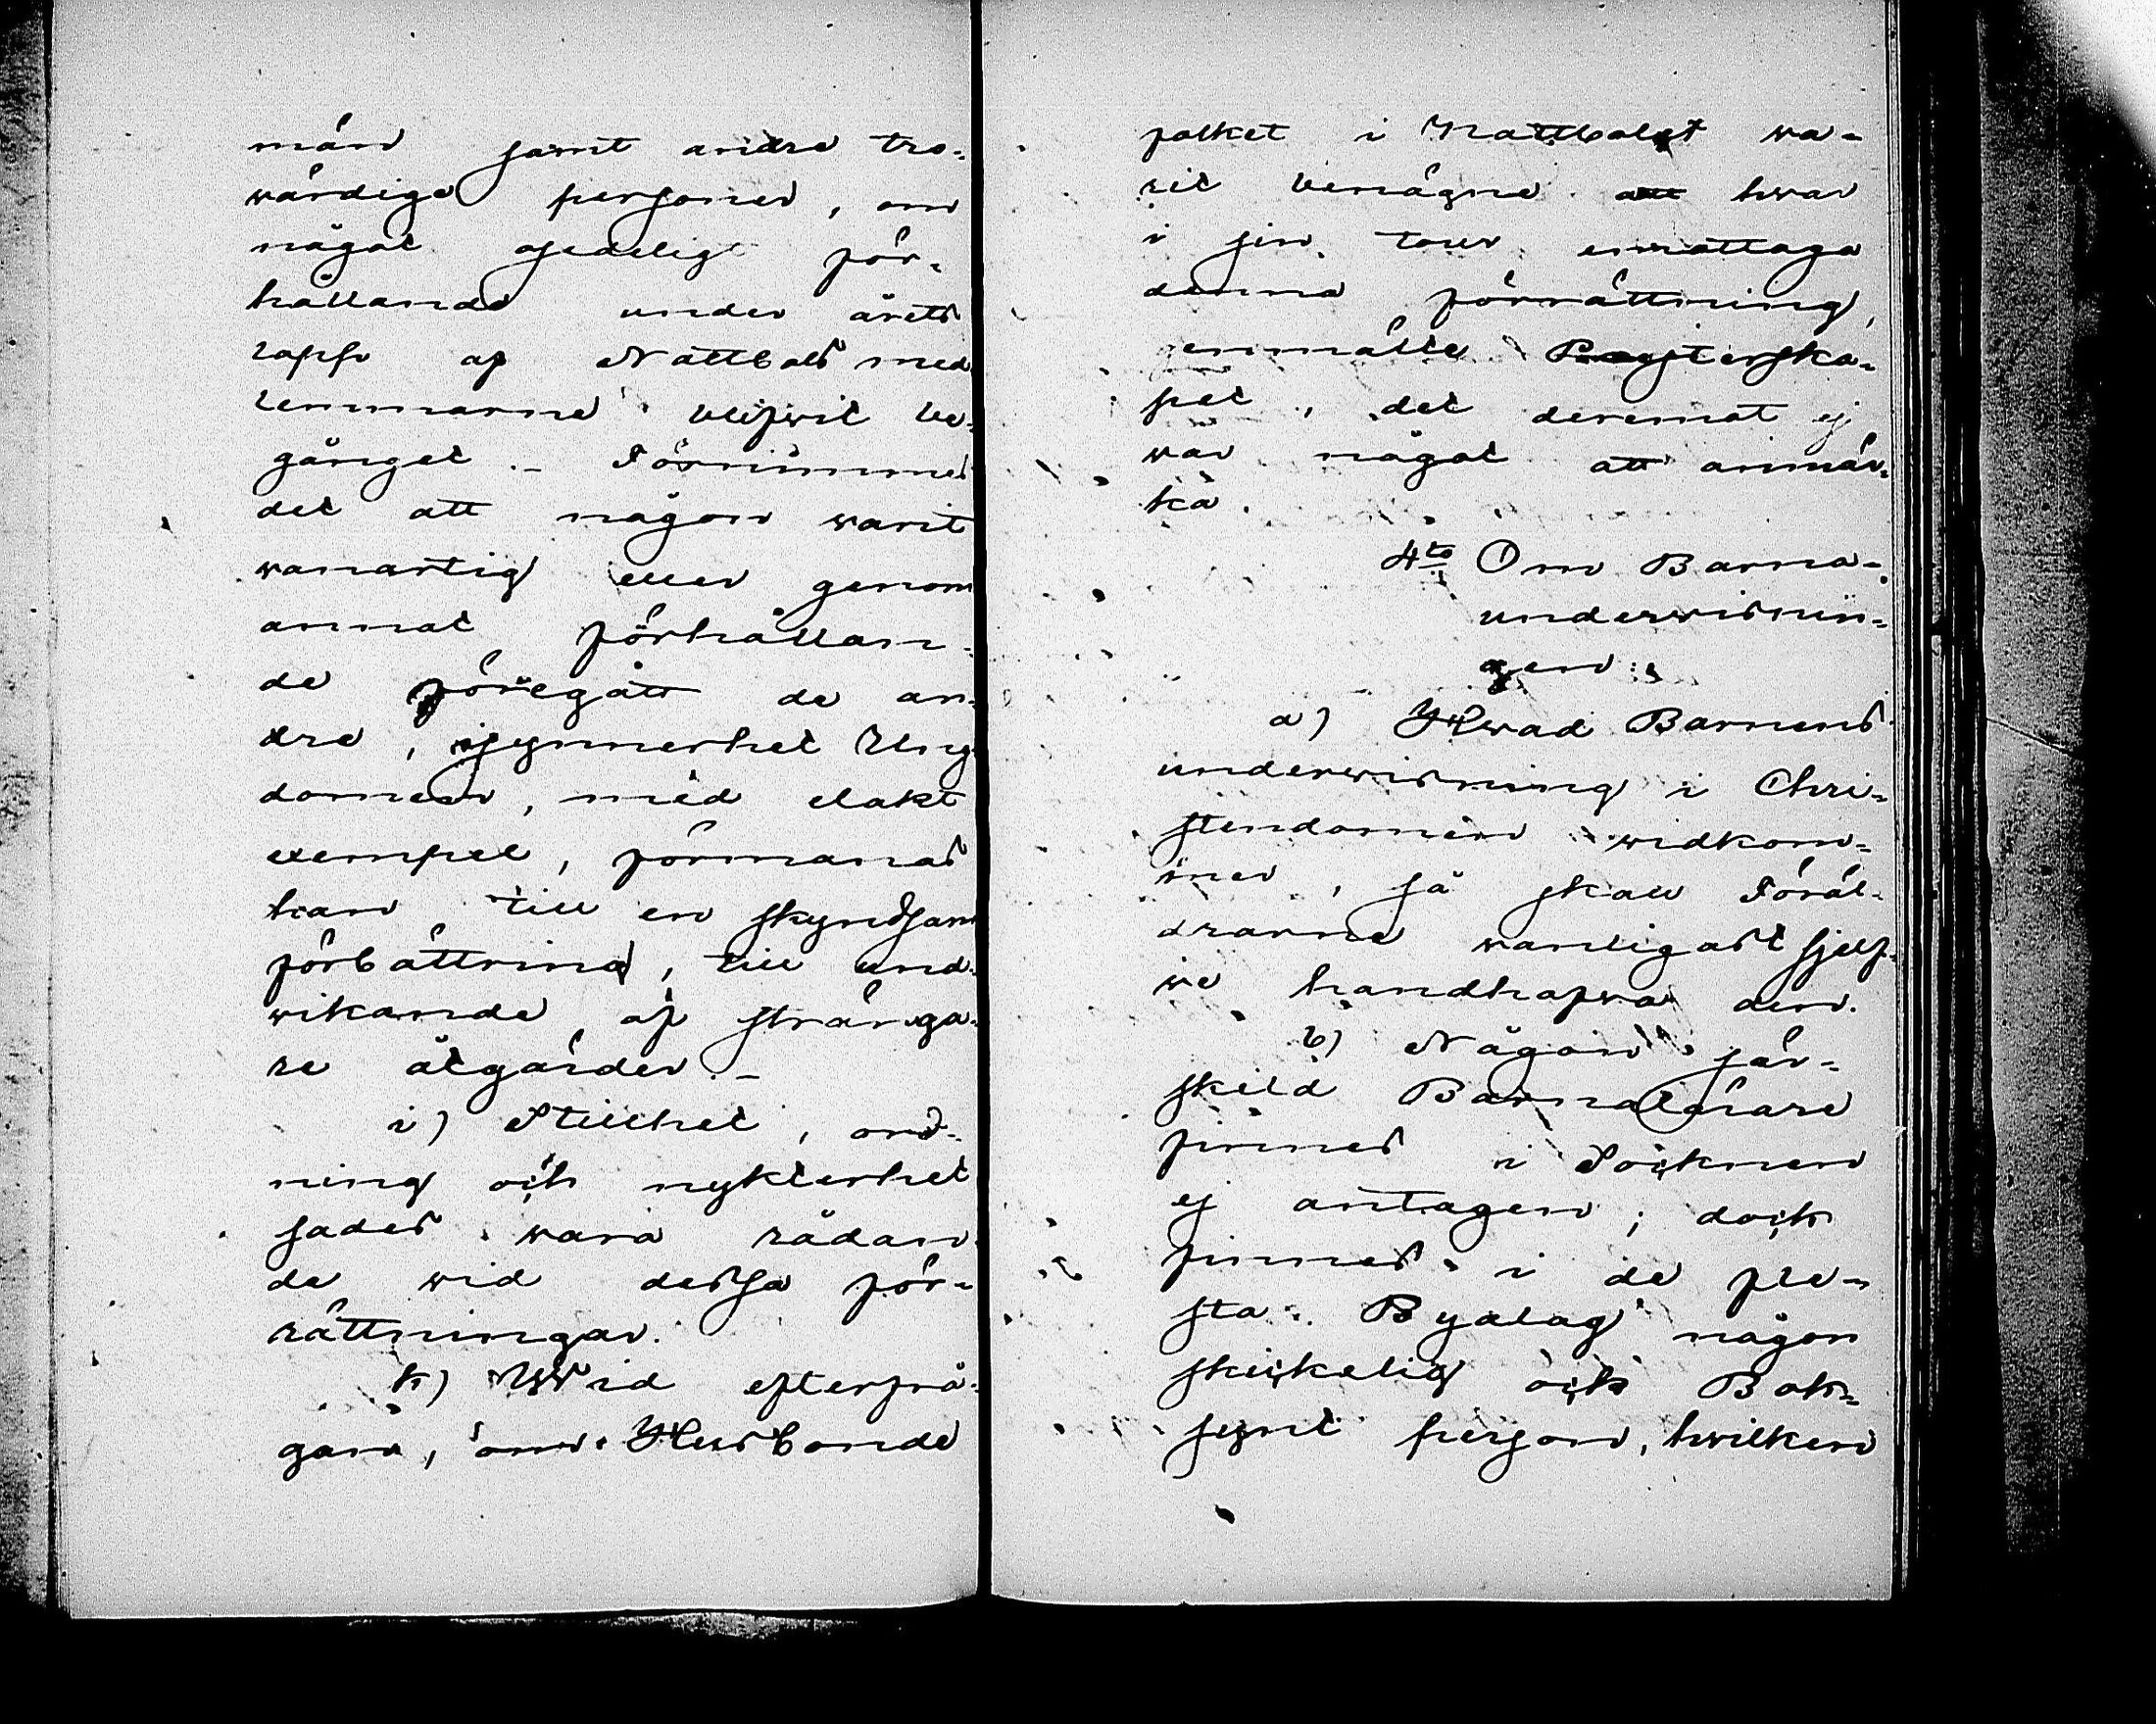 män samt andre tro-
wärdige personer, om
någåt osedeligt för-
hållande under årets
lopp af Nattbols med
lemmarne blifwit be-
gånget. – Förnimmes
det att någon warit
wanartig eller genom
annat förhållan-
de föregått de an-
dre, isynnerhet Ung
domen, med elakt
exempel, förmanas
han till en skyndsam
förbättring, till und-
wikande af stränga-
re åtgärder. –
i) Stillhet, ord-
ning och nykterhet
sades wara rådan-
de wid dessa för-
rättningar.
k) Wid efterfrå-
gan, om Husbonde
folket i Nattbolet wa-
rit benägne att hwar
i sin tour emottaga
denna förrättning,
genmälte Presterska-
pet, det deremot ej
war någåt att anmär-
ka.
4to Om Barna-
underwisnin-
gen.
a) Hwad Barnens
underwisning i Chri-
stendomen widkom-
mer, så skall Föräl-
drarne wanligast sjelf-
we handhafwa den.
b) Någon sär-
skild Barnalärare
finnes i Socknen
ej antagen; dock
finnes i de fle-
sta Byalag någon
skickelig och Bok-
synt person, hwilken